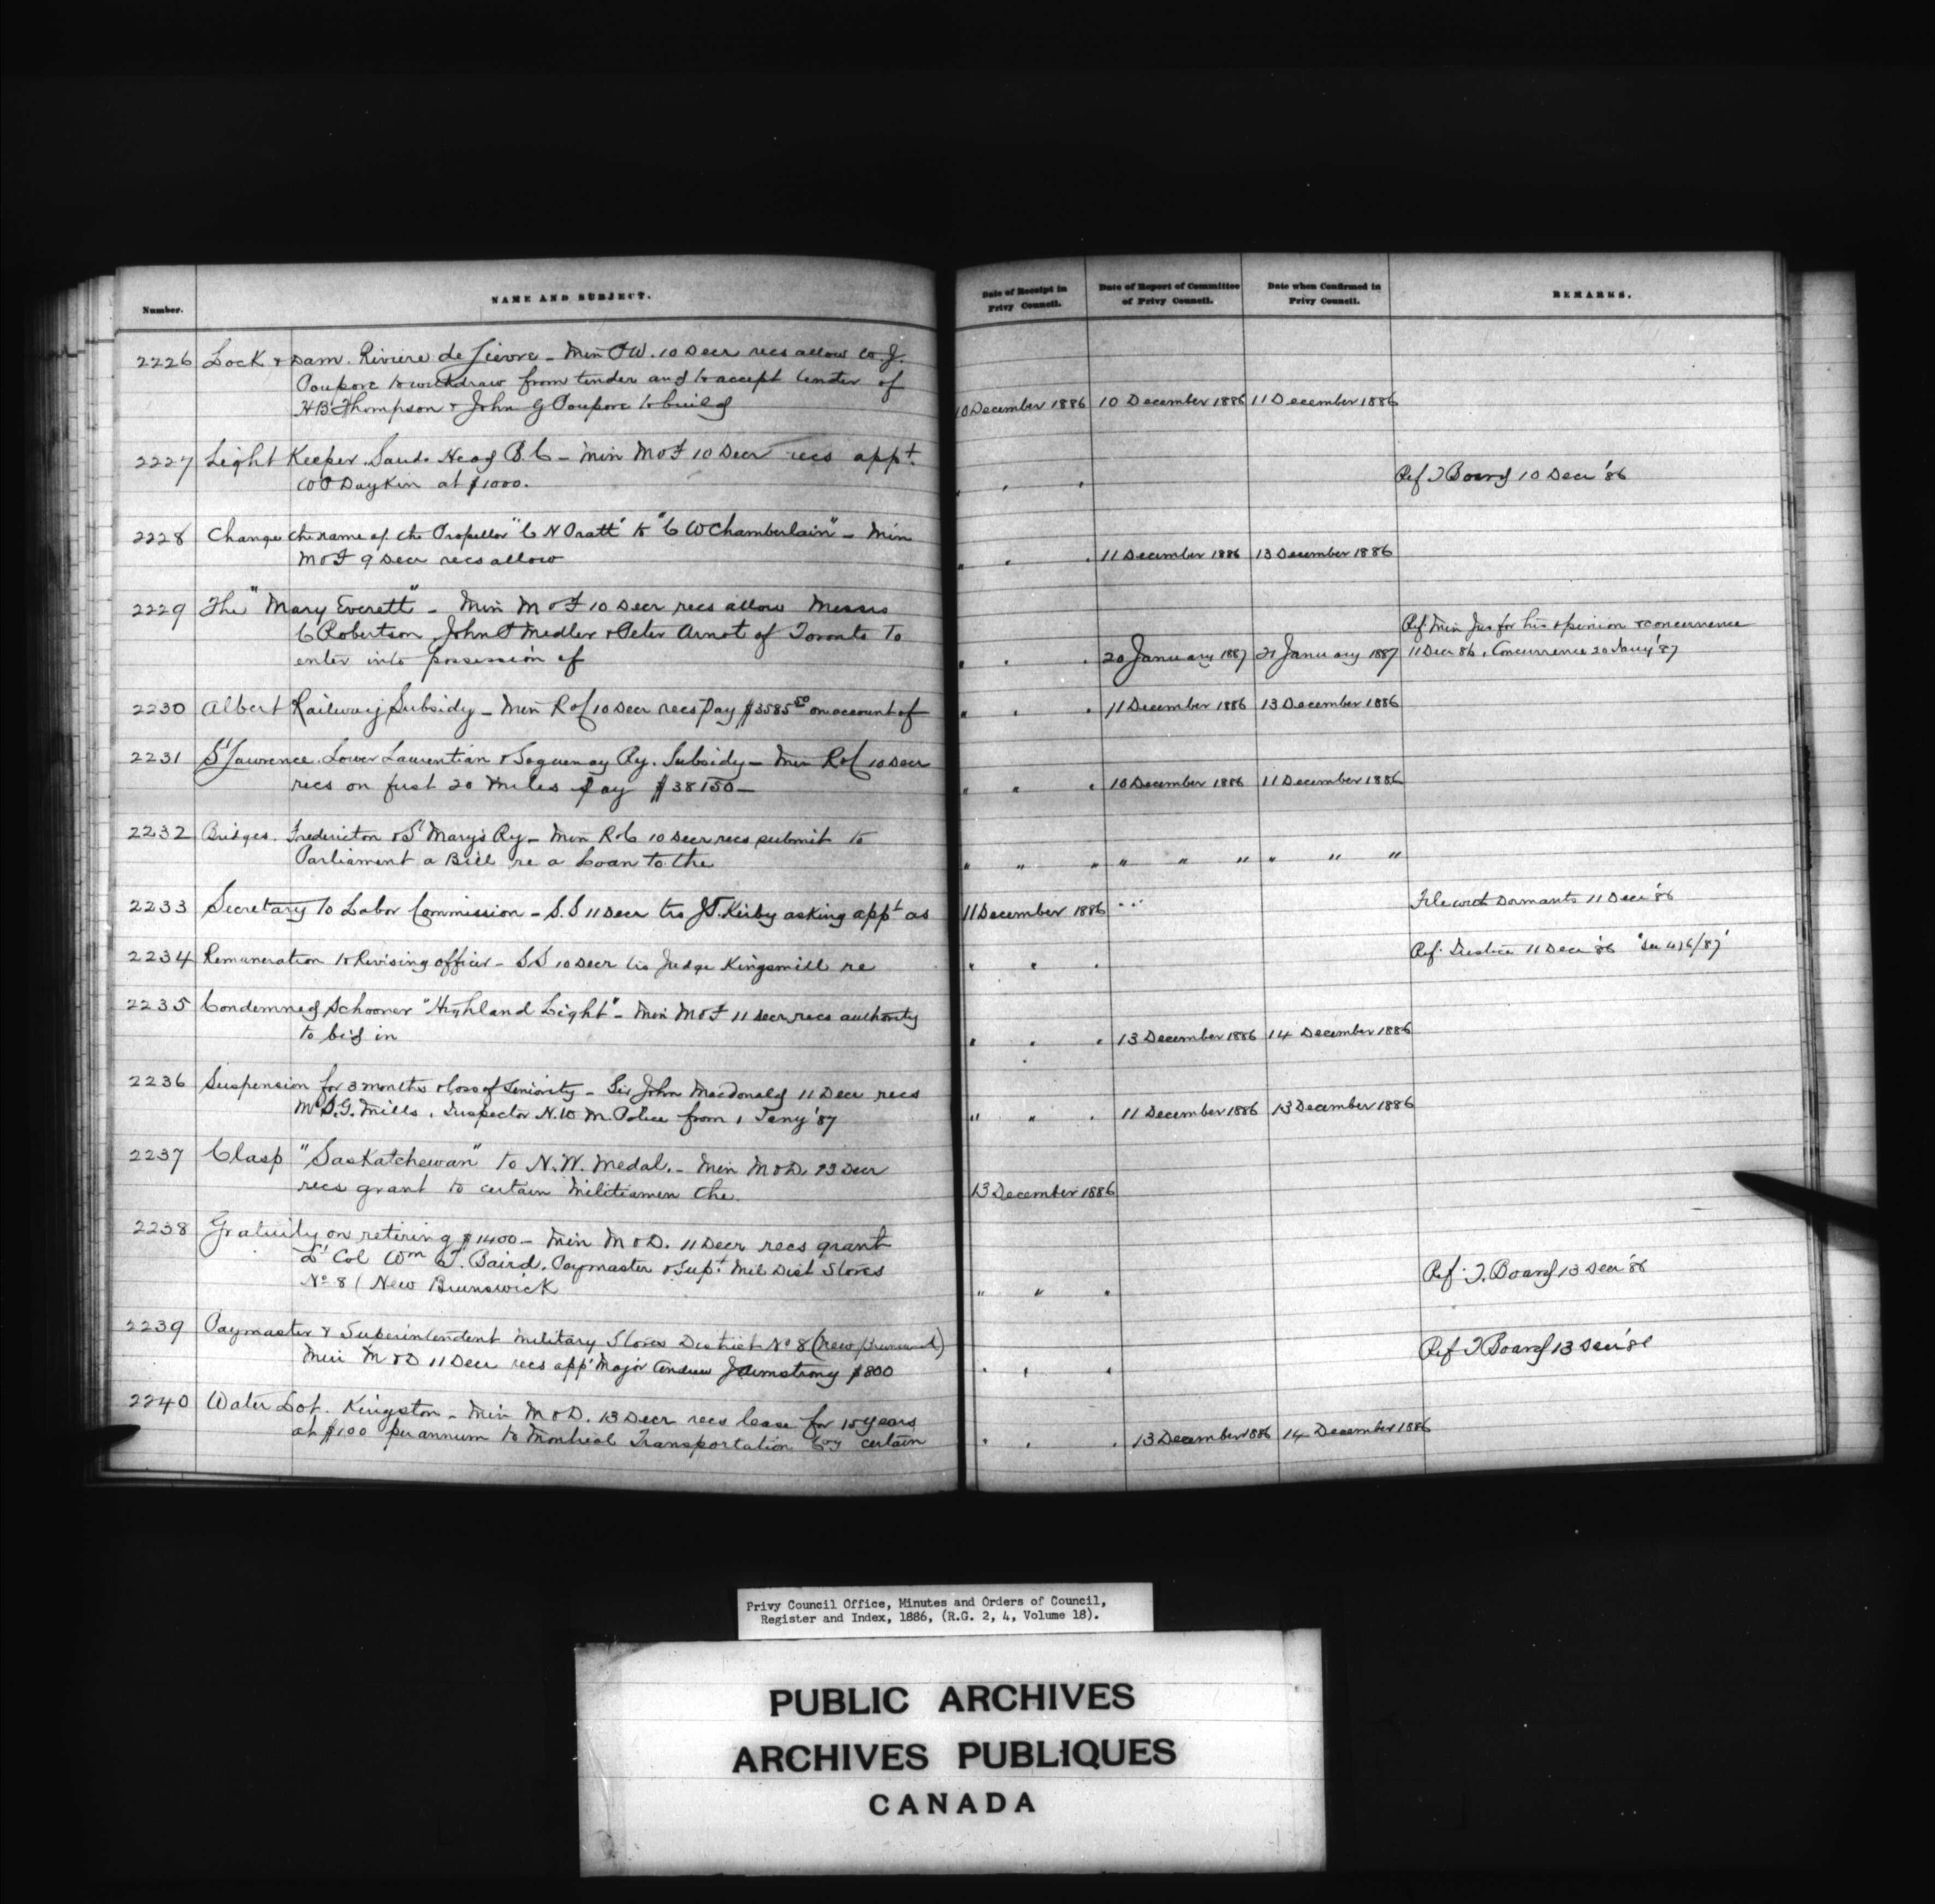 Number.
NAME AND SUBJECT.
Date of Receipt in Privy Council.
Date of Report of Committee of Privy Council.
Date when Confirmed in Privy Council.
REMARKS.
2226 Lock & Dam. Riviere de Lievre - Min P W. 10 Decr recs allow W. J.
Poupore to withdraw from tender and to accept tender of
H B Thompson & John G Poupore to build
10 December 1886 10 December 1886 11 December 1886
2227 Light Keeper. Sand. Head B.C - Min M & F 10 Decr recs appt.
W P Daykin at $1000.
" " "
Ref. T Board 10 Decr '86
2228 Change the name of the Propellor "C N Pratt" to "C W Chamberlain" - Min
M & F 9 Decr recs allow
" " " 11 December 1886 13 December 1886
2229 The "Mary Everett" - Min M & F 10 Decr recs allow Messrs
C Robertson, John P Medler & Peter Arnot of Toronto to
enter into possession of
" " " 20 January 1887 21 January 1887
Ref. Min Jus for his opinion & concurrence
11 Decr 86. Concurrence 20 Jany '87
2230 Albert Railway Subsidy - Min R & C 10 Decr recs pay $3585 50 on account of
" " " 11 December 1886 13 December 1886
2231 St Lawrence. Lower Laurentian & Saguenay Ry. Subsidy - Min R & C 10 Decr
recs on first 20 miles pay $38150 -
" " " 10 December 1886 11 December 1886
2232 Bridges. Fredericton & St Mary's Ry - Min R & C 10 Decr recs submit to
Parliament a Bill re a Loan to the
" " " " " " " " "
2233 Secretary to Labor Commission - S.S 11 Decr trs J T. Kirby asking appt as
11 December 1886
File with Dormants 11 Decr '86
2234 Remuneration to Revising officer - S S 10 Decr trs Judge Kingsmill re
" " "
Ref. Justice 11 Decr '86 "See 416/87"
2235 Condemned Schooner "Highland Light" - Min M & F 11 Decr recs authority
to bid in
" " " 13 December 1886 14 December 1886
2236 Suspension for 3 months & loss of Seniority - Sir John Macdonald 11 Decr recs
Mr S. G. Mills, Inspector N. W M. Police from 1 Jany '87
" " " 11 December 1886 13 December 1886
2237 Clasp "Saskatchewan" to N. W. Medal. - Min M & D. 13 Decr
recs grant to certain Militiamen the.
13 December 1886
2238 Gratuity on retiring $1400 - Min M & D. 11 Decr recs grant
Lt Col Wm T. Baird. Paymaster & Supt. Mil Dist Stores
No 8 ( New Brunswick
" " "
Ref. T. Board 13 Decr '86
2239 Paymaster & Superintendent Military Stores District No 8 (New Brunswick)
Min M & D 11 Decr recs appt Major Andrew J Armstrong $800
" " "
Ref T Board 13 Decr '86
2240 Water Lot. Kingston - Min M & D. 13 Decr recs lease for 15 years
at $100 per annum to Montreal Transportation Coy certain
" " " 13 December 1886 14 December 1886
Privy Council Office, Minutes and Orders of Council,
Register and Index, 1886, (R.G. 2, 4, Volume 18).
PUBLIC ARCHIVES
ARCHIVES PUBLIQUES
CANADA